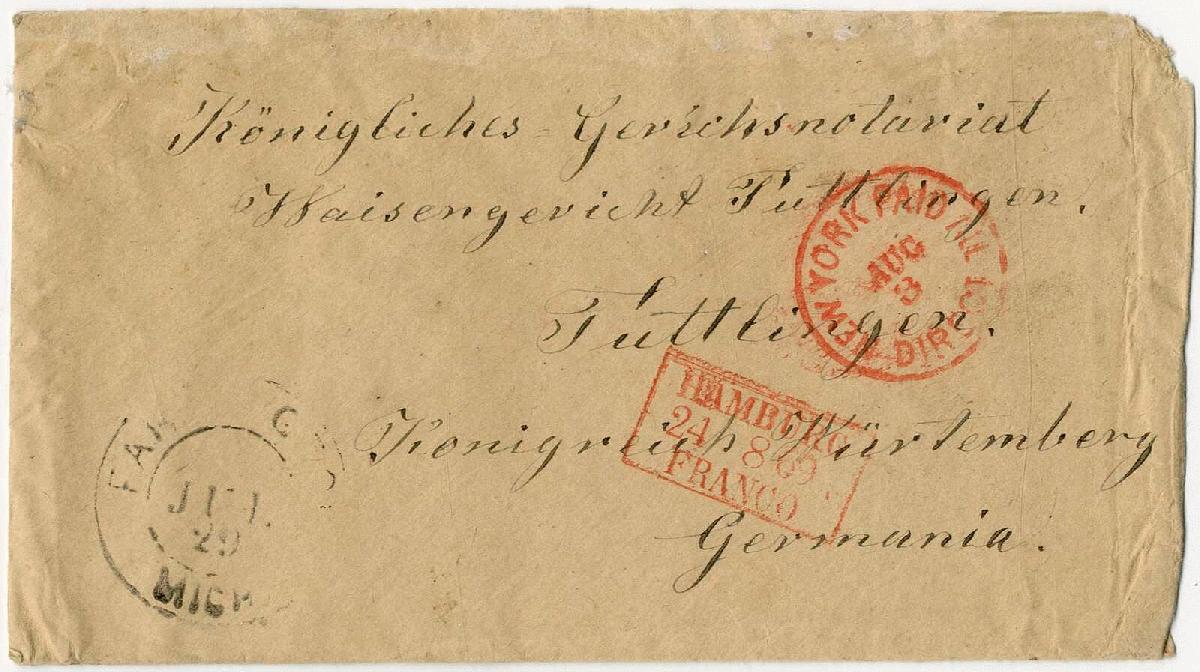 Königliches - Gerichsnotariat
Waisengericht Tuttlingen.
Tuttlingen.
Königreich Würtemberg
Germania.
NEW YORK PAID ALL
AUG
3
DIRECT
HAMBURG
24 8 69
FRANCO
JUL
29
MICH